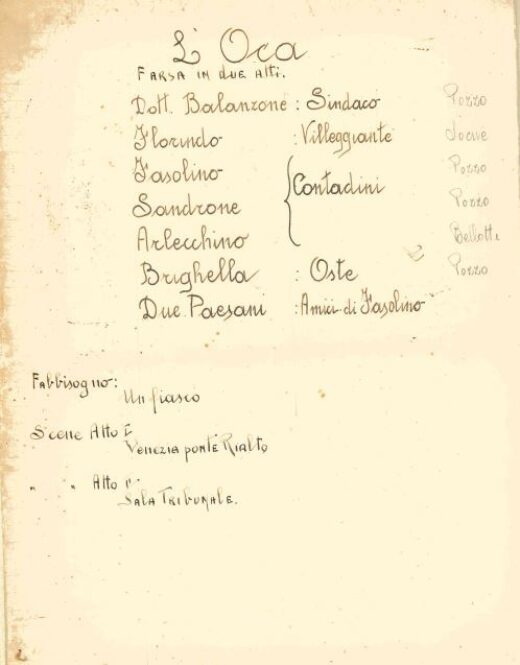 L'Oca
FARSA IN DUE ATTI.
Dott. Balanzone : Sindaco Pozzo
Florindo : Villeggiante
Fasolino Pozzo
Sandrone { Contadini Pozzo
Arlecchino Bellotti
Brighella : Oste Pozzo
Due Paesani : Amici di Fasolino
Fabbisogno:
Un fiasco
Scene Atto I
VENEZIA PONTE RIALTO
" " Atto
SALA TRIBUNALE.